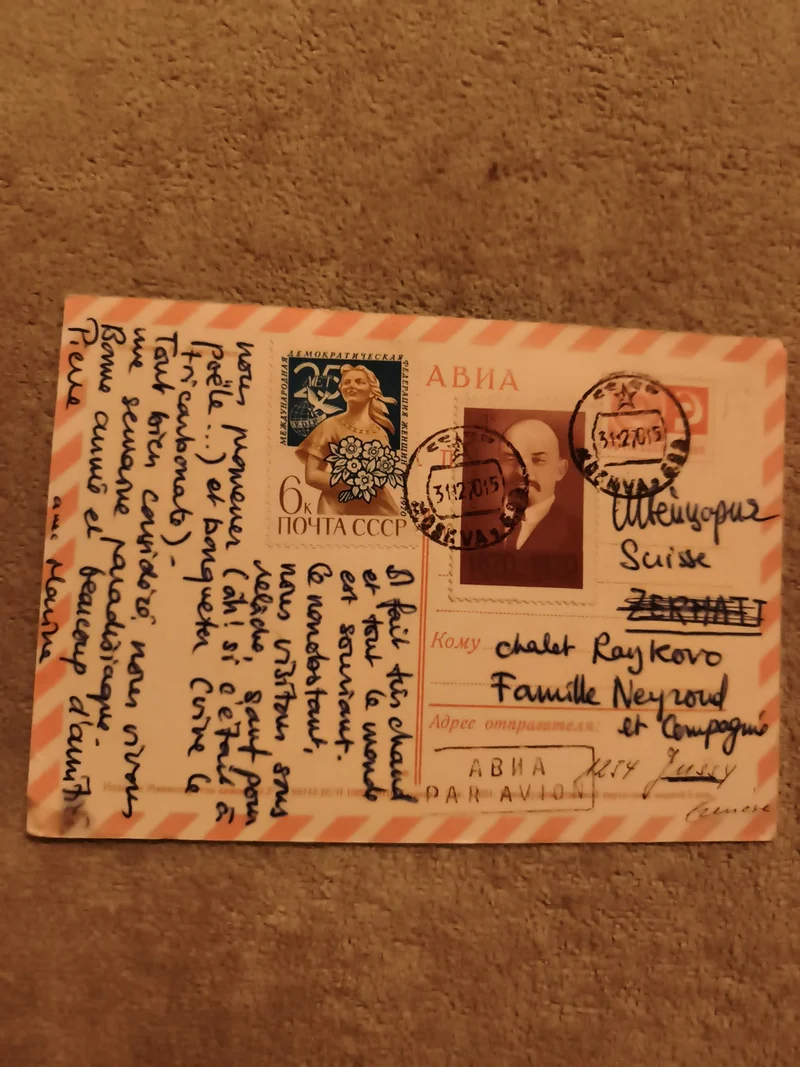 Il fait très chaud
et tout le monde
est souriant.
Ce nonobstant,
nous visitons sans
relâche, sauf pour
nous promener (ah! si c'était à
poële...) et banqueter (vive le
tricarbonate) -
Tout bien considéré, nous vivons
une semaine paradisiaque.
Bonne année et beaucoup d'amitiés
Pierre
МЕЖДУНАРОДНАЯ ДЕМОКРАТИЧЕСКАЯ ФЕДЕРАЦИЯ ЖЕНЩИН
25
ЛЕТ
6к
ПОЧТА СССР
АВИА
1870-1970
СССР
31127015
MOSKVA
СССР
31127015
MOSKVA
Швейцария
Suisse
ZERMATT
Кому
chalet Raykovo
Famille Neyroud
et Compagnie
Адрес отправителя:
АВИА
PAR AVION
1254 Jussy
Genève